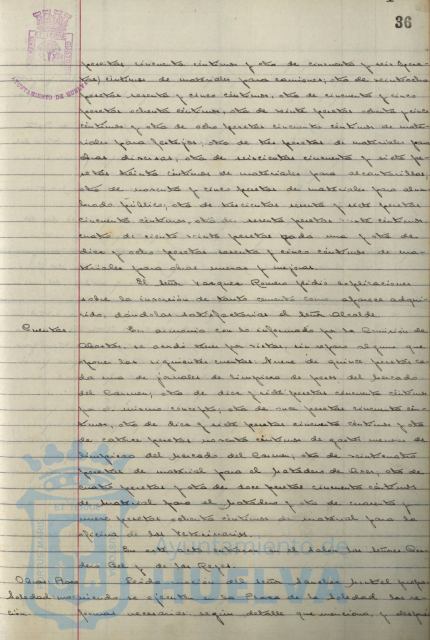 36
AYUNTAMIENTO DE HUELVA
pesetas cincuenta céntimos y otra de cincuenta y seis pesetas
céntimos de materiales para camiones; otra de veintiocho
pesetas sesenta y cinco céntimos, otra de cincuenta y cinco
pesetas ochenta céntimos, otra de veinte pesetas ochenta y cinco
céntimos y otra de ocho pesetas cincuenta céntimos de mate-
riales para festejos; otra de tres pesetas de materiales para
obras diversas, otra de seiscientas cincuenta y siete pe-
setas treinta céntimos de materiales para alcantarillas,
otra de noventa y cinco pesetas de materiales para alum-
brado público; otra de trescientas y siete pesetas
cincuenta céntimos, otra de sesenta pesetas céntimos
de ciento veinte pesetas cada una y otra de
diez y ocho pesetas sesenta y cinco céntimos de ma-
teriales para obras nuevas y mejoras.
El señor Vazquez Romero pidió explicaciones
sobre la inversión de tanto cemento como aparece adqui-
rido, dándolas satisfactorias el señor Alcalde.
Cuentas En armonía con lo informado por la Comisión de
Abastos, se acordó sean por vistas, sin reparo alguno que
oponer las siguientes cuentas: Nueve de quince pesetas ca-
da una de jornales de limpieza de del mercado
del Carmen; otra de diez y siete pesetas cincuenta céntimos
por el mismo concepto; otra de seis pesetas cincuenta cén-
timos, otra de diez y siete pesetas cincuenta céntimos y otra
de catorce pesetas noventa céntimos de gastos menores de
limpieza del mercado del Carmen, otra de
pesetas de material para el matadero de otra de
cuatro pesetas y otra de doce pesetas cincuenta céntimos
de material para el matadero y otra de cuarenta y
nueve pesetas ochenta céntimos de material para la
oficina de los Veterinarios.
En este acto entran en el salón los señores
y de los Reyes.
Obras Plaza Leida moción del señor Sanchez
Soledad se ejecuten en la Plaza de la Soledad las re-
formas necesarias según detalle que menciona, y despues
Ayuntamiento de
HUELVA